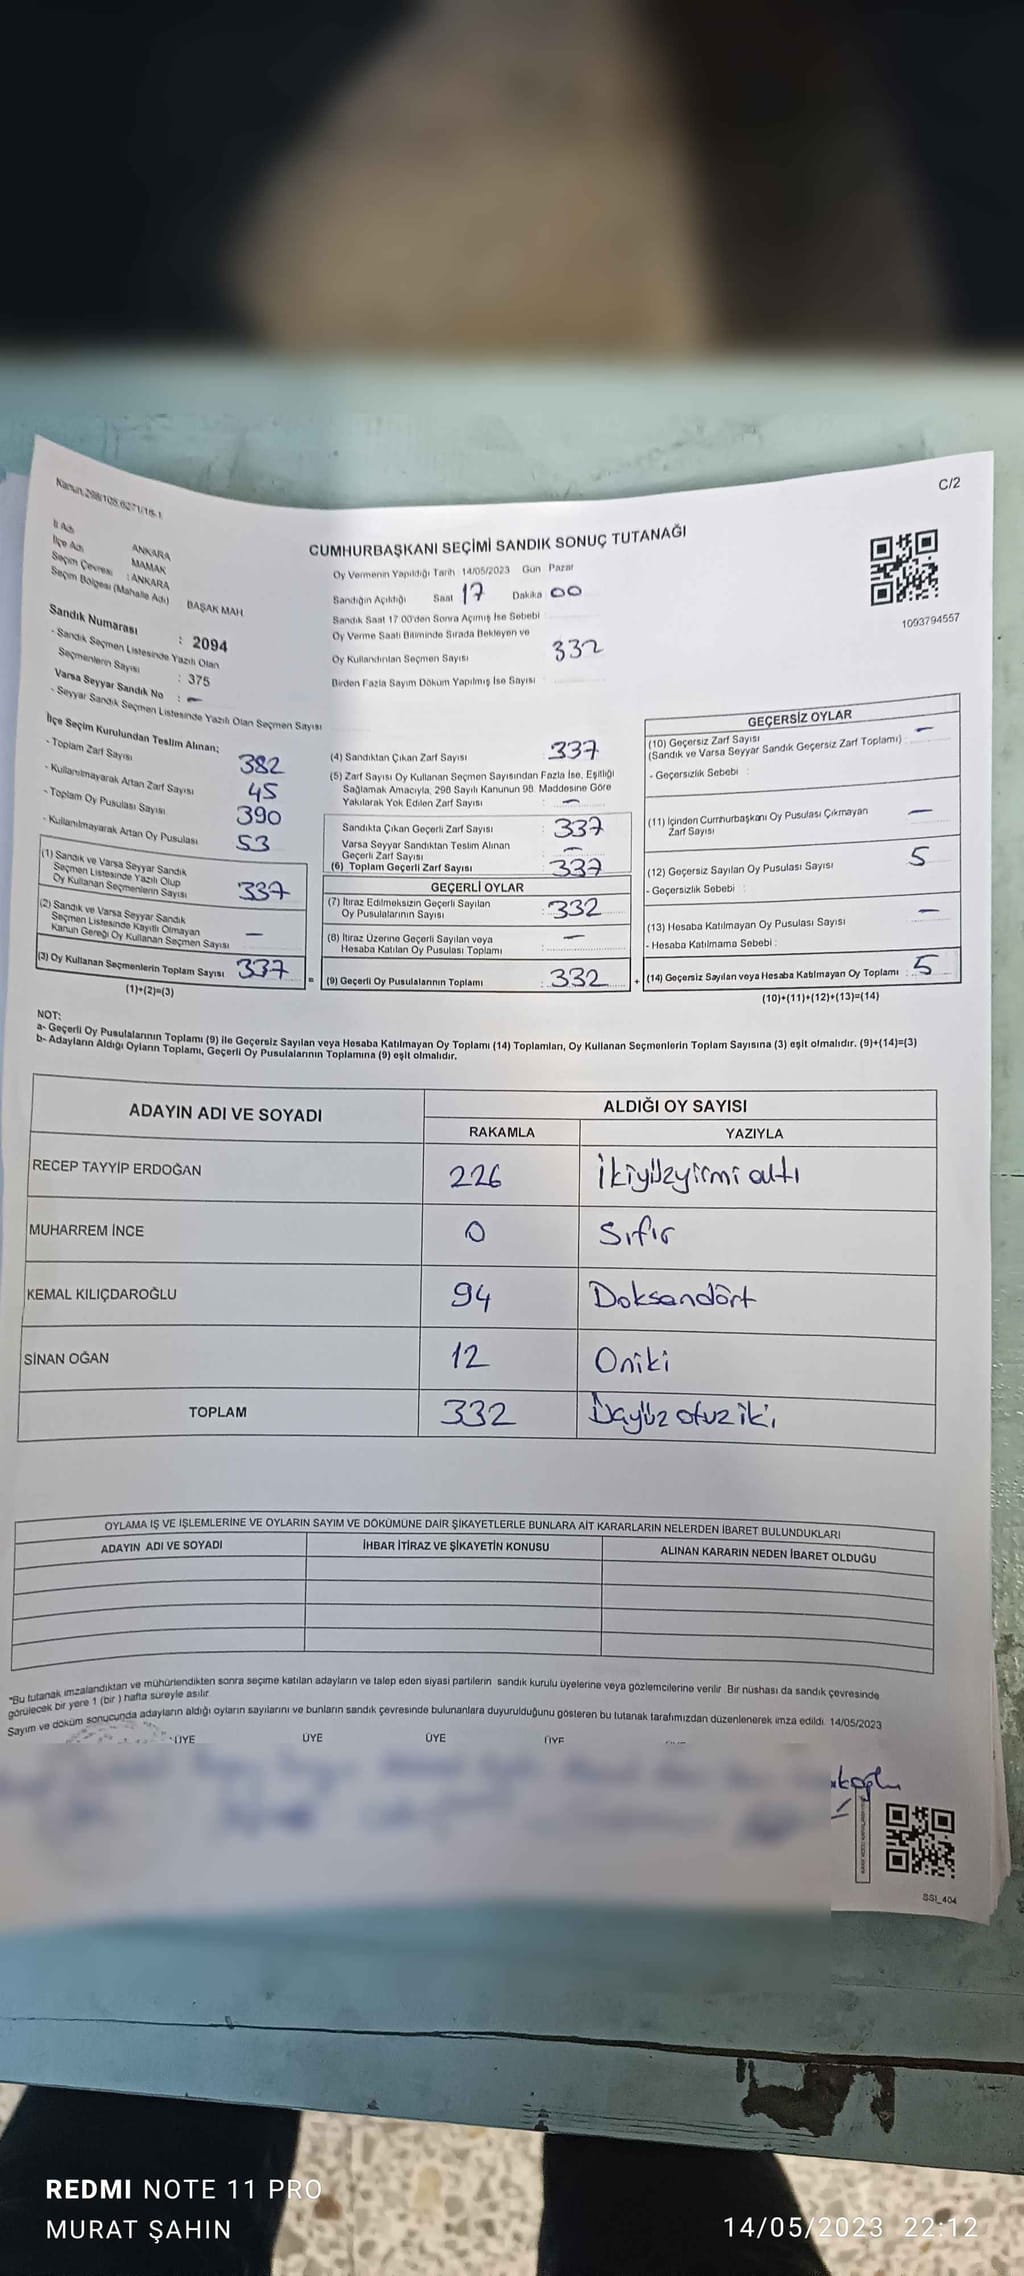 Kanun.298/105,6271/16-1
C/2
İl Adı ANKARA
İlçe Adı MAMAK
Seçim Çevresi : ANKARA
Seçim Bölgesi (Mahalle Adı) BAŞAK MAH
Sandık Numarası : 2094
- Sandık Seçmen Listesinde Yazılı Olan
Seçmenlerin Sayısı : 375
Varsa Seyyar Sandık No : —
- Seyyar Sandık Seçmen Listesinde Yazılı Olan Seçmen Sayısı
CUMHURBAŞKANI SEÇİMİ SANDIK SONUÇ TUTANAĞI
Oy Vermenin Yapıldığı Tarih : 14/05/2023 Gün Pazar
Sandığın Açıldığı Saat 17 Dakika : 00
Sandık Saat 17.00'den Sonra Açımış İse Sebebi
Oy Verme Saati Bitiminde Sırada Bekleyen ve
Oy Kullandırılan Seçmen Sayısı 332
Birden Fazla Sayım Döküm Yapılmış İse Sayısı
1093794557
İlçe Seçim Kurulundan Teslim Alınan;
- Toplam Zarf Sayısı 382
- Kullanılmayarak Artan Zarf Sayısı 45
- Toplam Oy Pusulası Sayısı 390
- Kullanılmayarak Artan Oy Pusulası 53
(1) Sandık ve Varsa Seyyar Sandık
Seçmen Listesinde Yazılı Olup
Oy Kullanan Seçmenlerin Sayısı 337
(2) Sandık ve Varsa Seyyar Sandık
Seçmen Listesinde Kayıtlı Olmayan
Kanun Gereği Oy Kullanan Seçmen Sayısı —
(3) Oy Kullanan Seçmenlerin Toplam Sayısı 337
(1)+(2)=(3)
=
(4) Sandıktan Çıkan Zarf Sayısı : 337
(5) Zarf Sayısı Oy Kullanan Seçmen Sayısından Fazla İse, Eşitliği
Sağlamak Amacıyla, 298 Sayılı Kanunun 98. Maddesine Göre
Yakılarak Yok Edilen Zarf Sayısı : —
Sandıkta Çıkan Geçerli Zarf Sayısı : 337
Varsa Seyyar Sandıktan Teslim Alınan
Geçerli Zarf Sayısı : —
(6) Toplam Geçerli Zarf Sayısı : 337
GEÇERLİ OYLAR
(7) İtiraz Edilmeksizin Geçerli Sayılan
Oy Pusulalarının Sayısı : 332
(8) İtiraz Üzerine Geçerli Sayılan veya
Hesaba Katılan Oy Pusulası Toplamı : —
(9) Geçerli Oy Pusulalarının Toplamı : 332
+
GEÇERSİZ OYLAR
(10) Geçersiz Zarf Sayısı
(Sandık ve Varsa Seyyar Sandık Geçersiz Zarf Toplamı) : —
- Geçersizlik Sebebi :
(11) İçinden Cumhurbaşkanı Oy Pusulası Çıkmayan
Zarf Sayısı —
(12) Geçersiz Sayılan Oy Pusulası Sayısı 5
- Geçersizlik Sebebi :
(13) Hesaba Katılmayan Oy Pusulası Sayısı —
- Hesaba Katılmama Sebebi :
(14) Geçersiz Sayılan veya Hesaba Katılmayan Oy Toplamı : 5
(10)+(11)+(12)+(13)=(14)
NOT:
a- Geçerli Oy Pusulalarının Toplamı (9) ile Geçersiz Sayılan veya Hesaba Katılmayan Oy Toplamı (14) Toplamları, Oy Kullanan Seçmenlerin Toplam Sayısına (3) eşit olmalıdır. (9)+(14)=(3)
b- Adayların Aldığı Oyların Toplamı, Geçerli Oy Pusulalarının Toplamına (9) eşit olmalıdır.
ADAYIN ADI VE SOYADI ALDIĞI OY SAYISI
RAKAMLA YAZIYLA
RECEP TAYYİP ERDOĞAN 226 İkiyüzyirmi altı
MUHARREM İNCE 0 Sıfır
KEMAL KILIÇDAROĞLU 94 Doksandört
SİNAN OĞAN 12 Oniki
TOPLAM 332 otuz iki
OYLAMA İŞ VE İŞLEMLERİNE VE OYLARIN SAYIM VE DÖKÜMÜNE DAİR ŞİKAYETLERLE BUNLARA AİT KARARLARIN NELERDEN İBARET BULUNDUKLARI
ADAYIN ADI VE SOYADI İHBAR İTİRAZ VE ŞİKAYETİN KONUSU ALINAN KARARIN NEDEN İBARET OLDUĞU
"Bu tutanak imzalandıktan ve mühürlendikten sonra seçime katılan adayların ve talep eden siyasi partilerin sandık kurulu üyelerine veya gözlemcilerine verilir. Bir nüshası da sandık çevresinde
görülecek bir yere 1 (bir ) hafta süreyle asılır.
Sayım ve döküm sonucunda adayların aldığı oyların sayılarını ve bunların sandık çevresinde bulunanlara duyurulduğunu gösteren bu tutanak tarafımızdan düzenlenerek imza edildi. 14/05/2023
ÜYE ÜYE ÜYE ÜYE
SSI_404
REDMI NOTE 11 PRO
MURAT ŞAHIN
14/05/2023 22:12